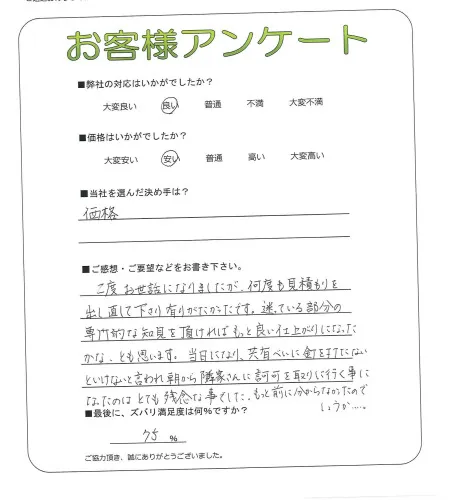 お客様アンケート
■弊社の対応はいかがでしたか？
大変良い 良い 普通 不満 大変不満
■価格はいかがでしたか？
大変安い 安い 普通 高い 大変高い
■当社を選んだ決め手は？
価格
■ご感想・ご要望などをお書き下さい。
二度お世話になりましたが、何度も見積もりを
出し直して下さり有りがたかったです。迷っている部分の
専門的な知見を頂ければもっと良い仕上がりになった
かな、とも思います。当日になり、共有べいに釘を打たない
といけないと言われ朝から隣家さんに許可を取りに行く事に
なったのはとても残念な事でした。もっと前に分からなかったので
しょうか…。
■最後に、ズバリ満足度は何%ですか？
75 %
ご協力頂き、誠にありがとうございました。